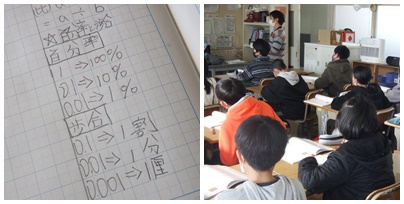 = a ÷ b
百分率
1 ⇒ 100%
0.1 ⇒ 10%
0.01 ⇒ 1%
歩合
0.1 ⇒ 1割
0.01 ⇒ 1分
0.001 ⇒ 1厘